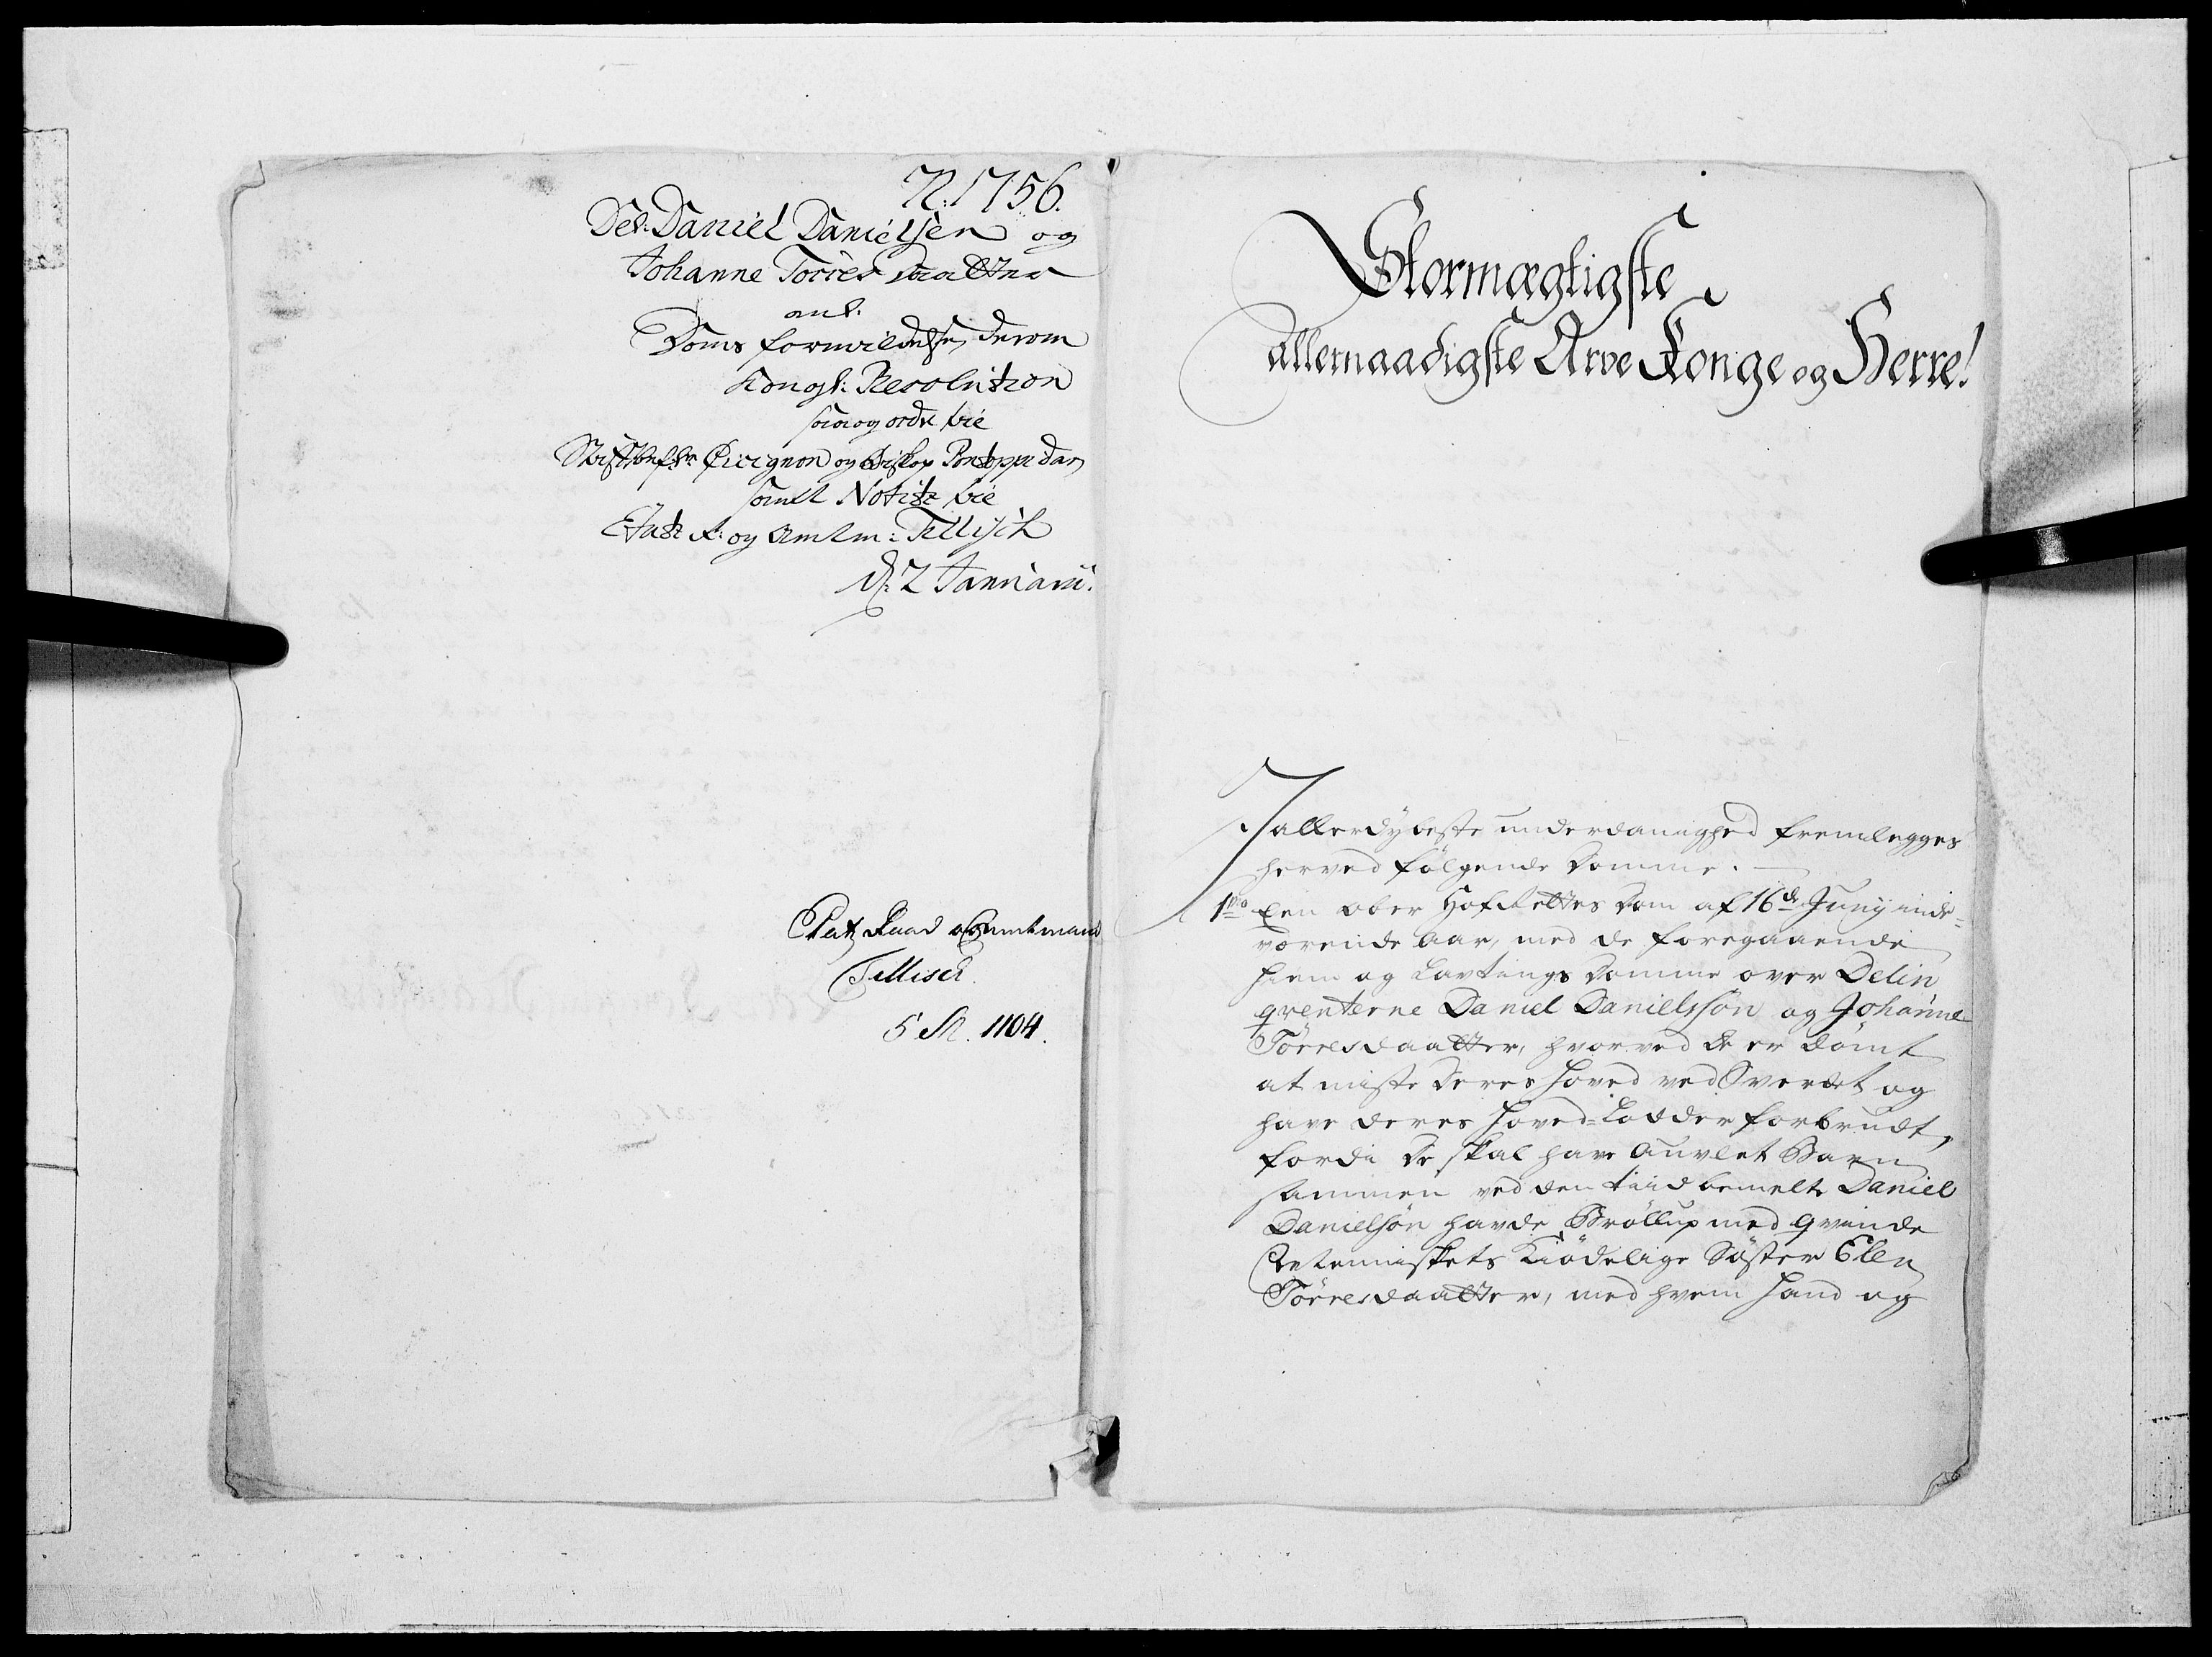 N: 1756.
Del: Daniel Danielsen og
Johanne Torres daatter
anl:
Doms formildelse, derom
Kongl: Resolution
som og ordre til
Stiftbefhr Cicignon og Biskop Pontoppidan
samt Notitz til
Etatz R: og Amtm: Tillisch
d: 2 Januarii.
Etatz Raad og Amtmand
Tillisch.
5 St. 1104.
Stormægtigste
Allernaadigste Arve Konge og Herre!
I allerdybeste underdanighed fremlegges
herved følgende Domme:
1mo Een ober HofRettes Dom af 16de Junij inde-
værende Aar, med de foregaaende
Hiem og Lavtings Domme over Delin
qventerne Daniel Danielssøn og Johanne
Tørresdaatter, hvorved de er dømt
at miste deres Hoved ved Sverdet og
have deres Hoved-Lodder forbrudt,
fordi de skal have auvlet Barn
sammen ved den tiid bemelte Daniel
Danielsøn havde Brøllup med qvinde
Menniskets Kiødelige Søster Elen
Tørresdaatter, med hvem hand og